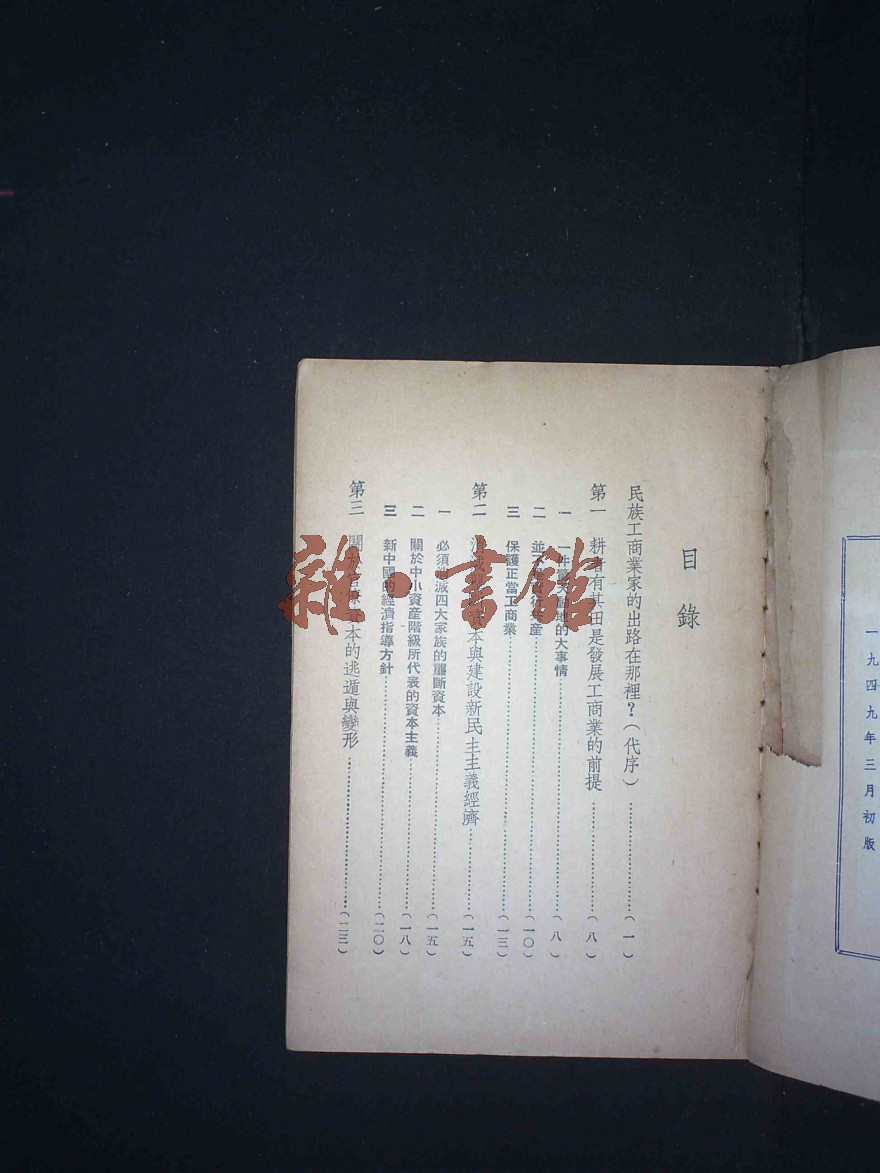 一九四九年三月初版
目錄
民族工商業家的出路在那裡?(代序)……(一)
第一 耕者有其田是發展工商業的前提……(八)
一 一件 的大事情……(八)
二 並不是實行 產……(一〇)
三 保護正當工商業……(一三)
第二 本與建設新民主主義經濟……(一五)
一 必須 滅四大家族的壟斷資本……(一五)
二 關於中小資産階級所代表的資本主義……(一八)
三 新中國的經濟指導方針……(二〇)
第三 關於 資本的逃遁與變形……(二三)
雜·書館